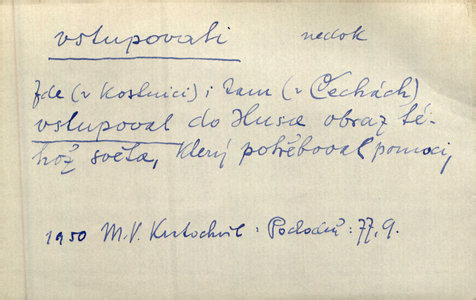 vstupovati nedok
Zde (v Kostnici) i tam (v Čechách)
vstupoval do Husa obraz té-
hož světa, který potřeboval pomoci,
1950 M.V. Kratochvíl : 77, 9.